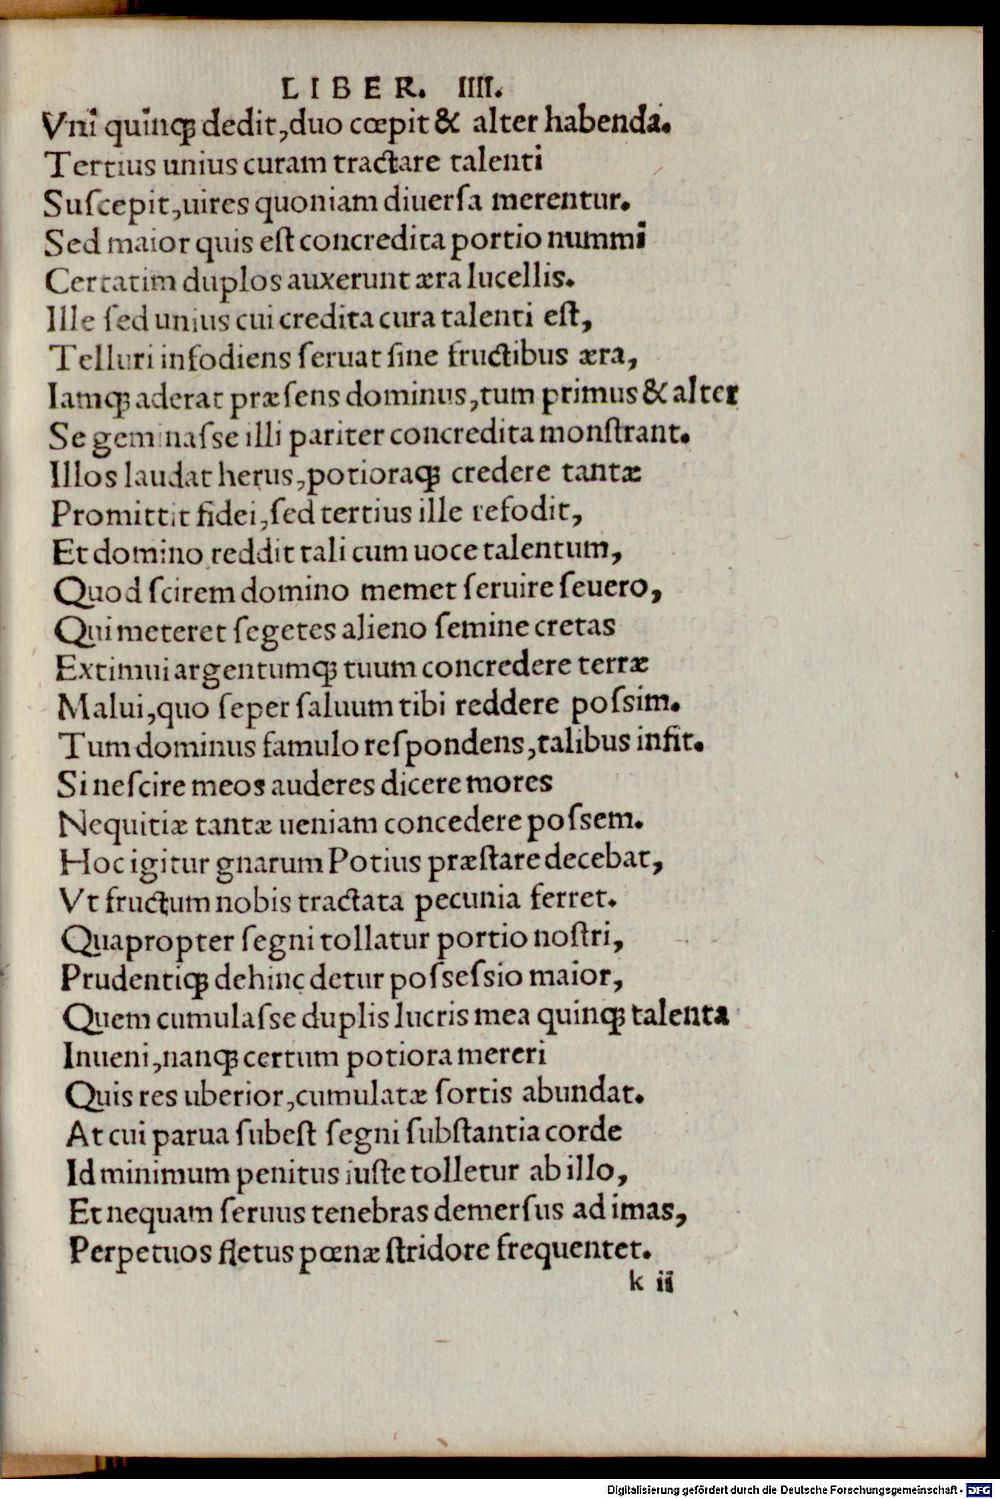 LIBER. IIII.
Vni quinqꝫ dedit,duo cœpit & alter habenda.
Tertius unius curam tractare talenti
Suſcepit,uires quoniam diuerſa merentur.
Sed maior quis eſt concredita portio nummi
Certatim duplos auxerunt æra lucellis.
Ille ſed unius cui credita cura talenti eſt,
Telluri infodiens ſeruat ſine fructibus æra,
Iamqꝫ aderat præſens dominus,tum primus & alter
Se geminaſſe illi pariter concredita monſtrant.
Illos laudat herus,potioraqꝫ credere tantæ
Promittit fidei,ſed tertius ille refodit,
Et domino reddit tali cum uoce talentum,
Quod ſcirem domino memet ſeruire ſeuero,
Qui meteret ſegetes alieno ſemine cretas
Extimui argentumqꝫ tuum concredere terræ
Malui,quo ſeper ſaluum tibi reddere poſſim.
Tum dominus famulo reſpondens,talibus infit.
Si neſcire meos auderes dicere mores
Nequitiæ tantæ ueniam concedere poſſem.
Hoc igitur gnarum Potius præſtare decebat,
Vt fructum nobis tractata pecunia ferret.
Quapropter ſegni tollatur portio noſtri,
Prudentiqꝫ dehinc detur poſſeſſio maior,
Quem cumulaſſe duplis lucris mea quinqꝫ talenta
Inueni,nanqꝫ certum potiora mereri
Quis res uberior,cumulatæ ſortis abundat.
At cui parua ſubeſt ſegni ſubſtantia corde
Id minimum penitus iuſte tolletur ab illo,
Et nequam ſeruus tenebras demerſus ad imas,
Perpetuos fletus pœnæ ſtridore frequentet.
k ii
Digitalisierung gefördert durch die Deutsche Forschungsgemeinschaft - DFG